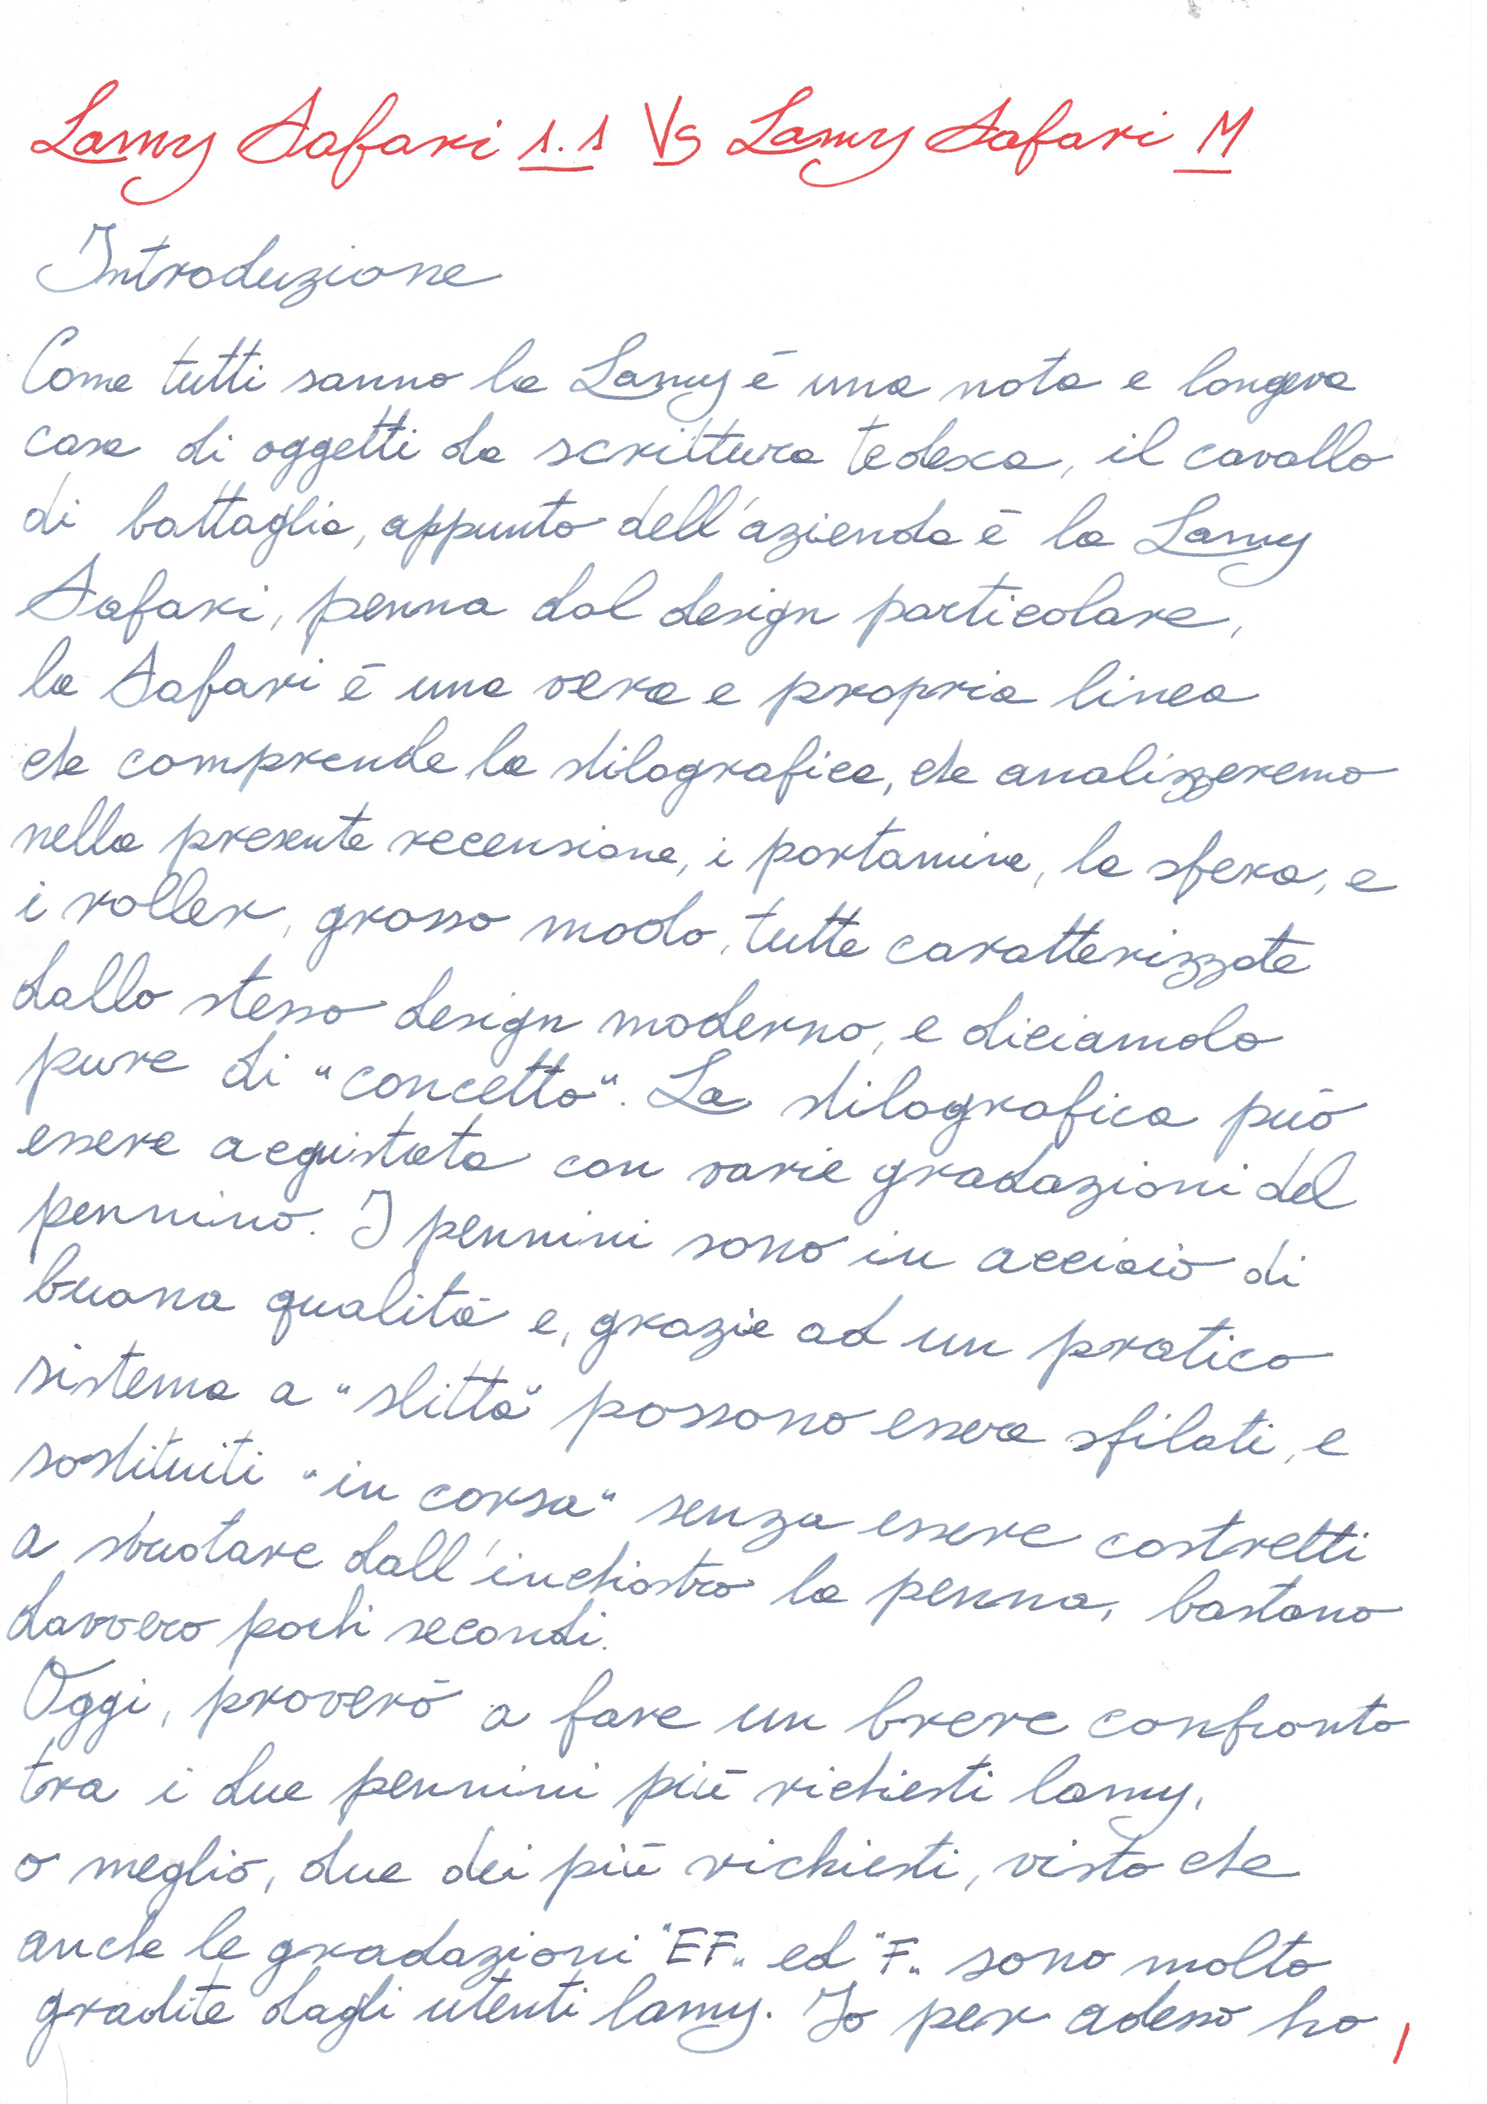 Lamy Safari 1.1 Vs Lamy Safari M
Introduzione
Come tutti sanno la Lamy è una nota e longeva
casa di oggetti da scrittura tedesca, il cavallo
di battaglia, appunto dell'azienda è la Lamy
Safari, penna dal design particolare,
la Safari è una vera e propria linea
che comprende la stilografica, che analizzeremo
nella presente recensione, i portamine, la sfera, e
i roller, grosso modo, tutte caratterizzate
dallo stesso design moderno, e diciamolo
pure di "concetto". La stilografica può
essere acquistata con varie gradazioni del
pennino. I pennini sono in acciaio di
buona qualità e, grazie ad un pratico
sistema a "slitta" possono essere sfilati, e
sostituiti "in corsa" senza essere costretti
a svuotare dall'inchiostro la penna, bastano
davvero pochi secondi.
Oggi, proverò a fare un breve confronto
tra i due pennini più richiesti lamy,
o meglio, due dei più richiesti, visto che
anche le gradazioni "EF" ed "F" sono molto
gradite dagli utenti lamy. Io per adesso ho